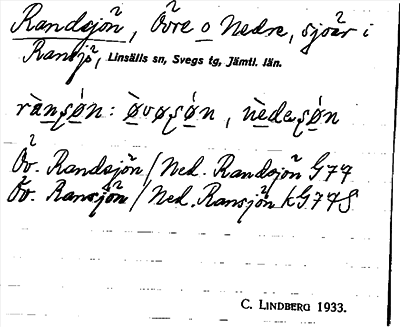 Randsjön, Övre o Nedre, sjöar i
Ransjö, Linsälls sn, Svegs tg, Jämtl. län.
rànsǿn: ø̀vøsǿn, nèdesǿn
Öv. Randsjön / Ned. Randsjön G77
Öv. Ransjön / Ned. Ransjön kG77S
C. LINDBERG 1933.